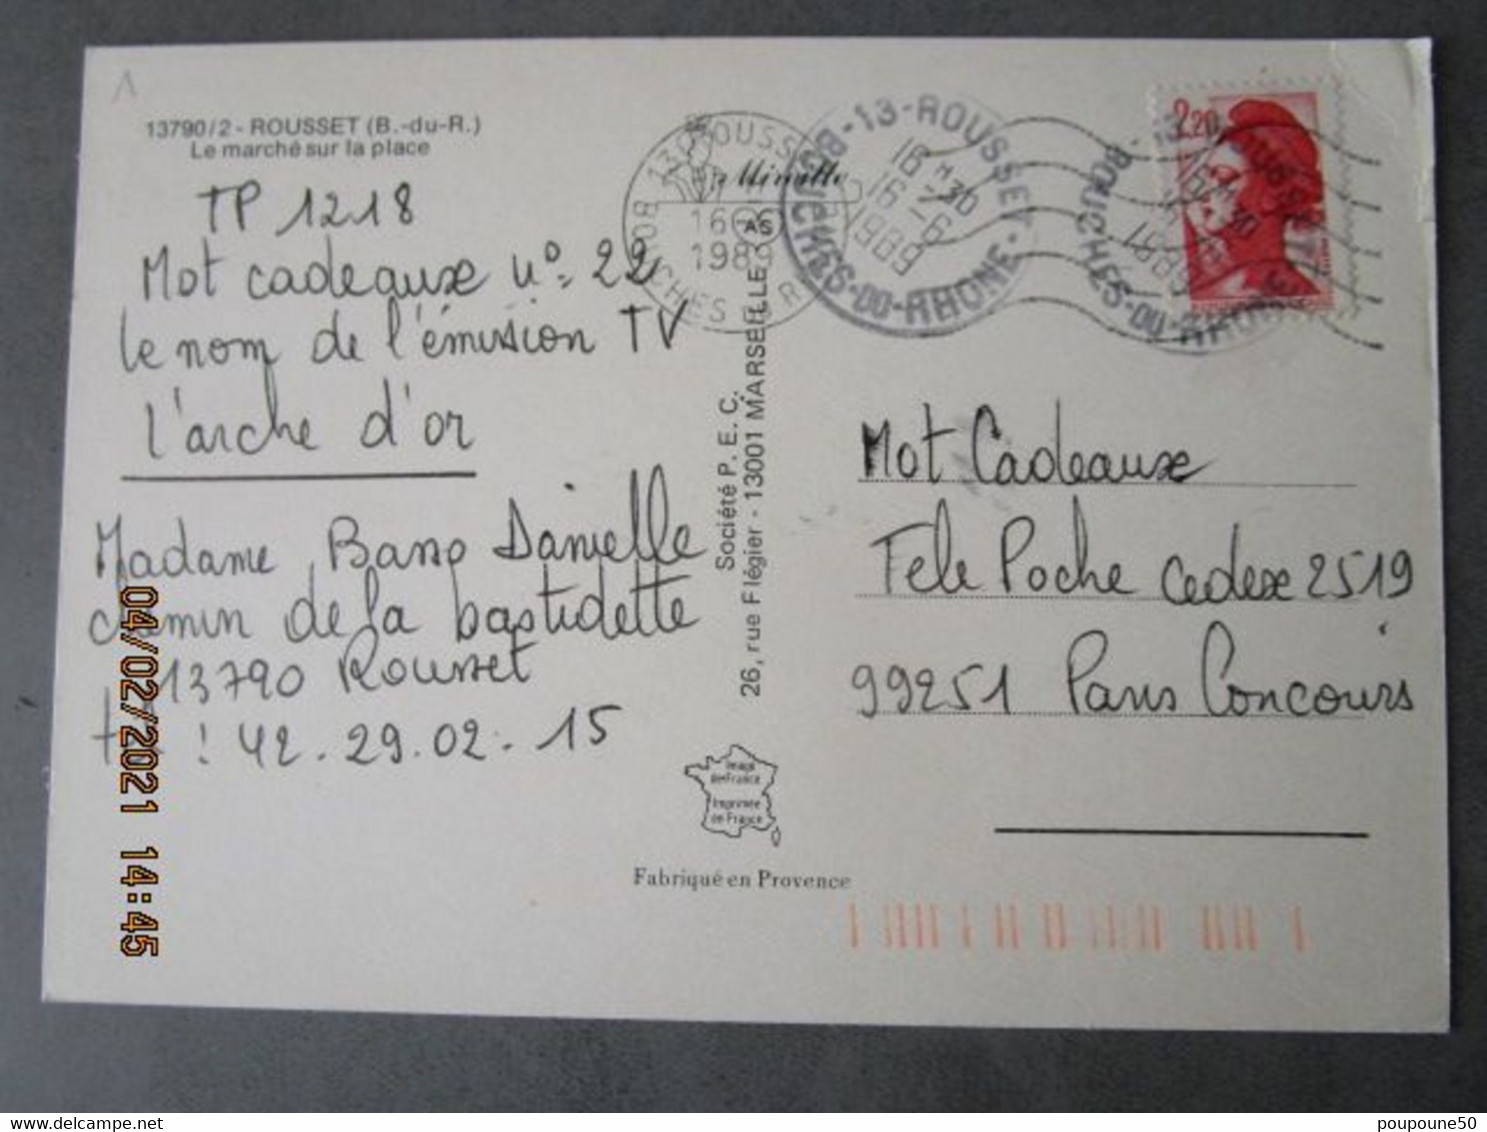 13790/2 - ROUSSET (B.-du-R.)
Le marché sur la place
TP 1218
Mot cadeaux n°= 22
le nom de l'émission TV
l'arche d'or
Madame Basso Danielle
chemin de la bastidette
13790 Rousset
! 42.29.02.15
13 ROUSSET
1989
BOUCHES D R
Mireille
13-ROUSSET
16 H 30
16-6
1989
BOUCHES-DU-RHONE
2,20
BOUCHES-DU-RHONE
Société P. E. C.
26, rue Flégier - 13001 MARSEILLE
Mot Cadeaux
Tele Poche Cedex 2519
99251 Paris Concours
Image
de France
Imprimée
en France
Fabriqué en Provence
04/02/2021 14:45
poupoune50